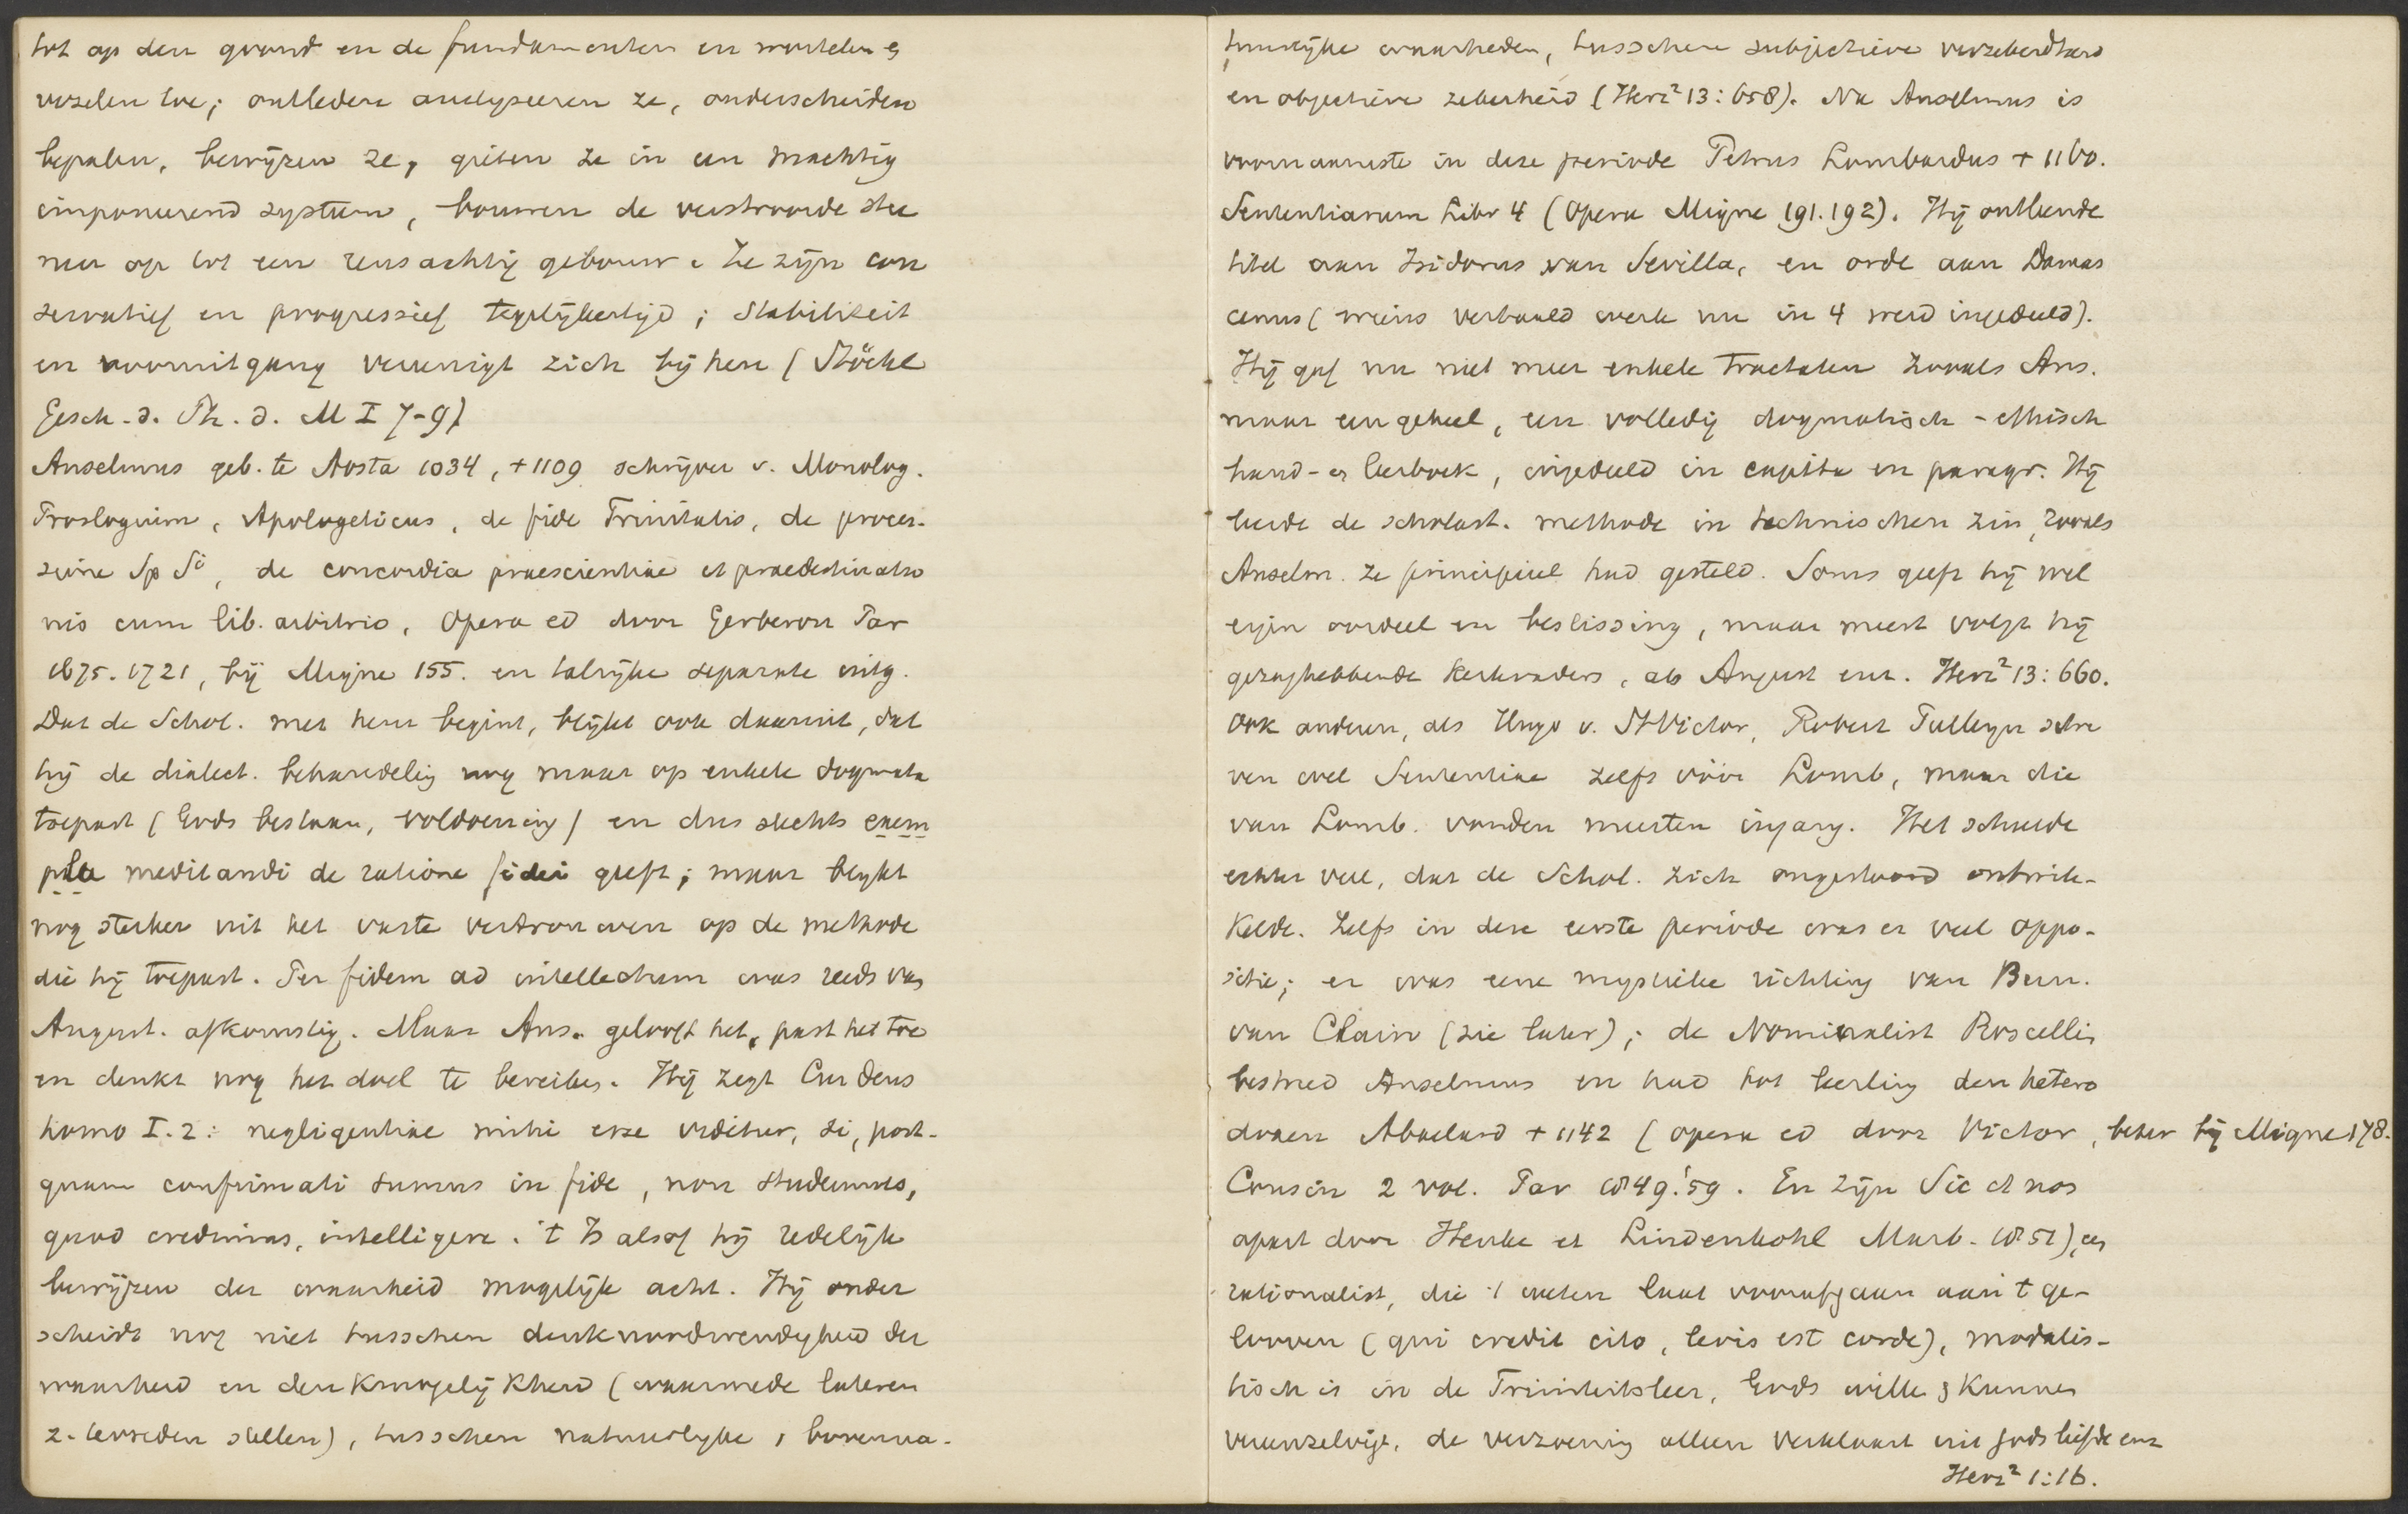 tot op den grond en de fundamenten en wortelen &
vezelen toe; ontleden analyseeren ze, onderscheiden
bepalen, bewijzen ze, gieten ze in een machtig
imponeerend systeem, bouwen de verstrooide stee
nen op tot een reusachtig gebouw. Ze zijn con
servatief en progressief tegelijkertijd; stabiliteit
en vooruitgang vereenigt zich bij hen (Stöckl
Gesch. d. Ph. d. M I 7-9)
Anselmus geb. te Aosta 1034, +1109 schrijver v. Monolog.
Proslogium, Apologeticus, de fide Trinitatis, de proces-
sione Sp Si, de concordia praescientiae et praedestinatio
nis cum lib. arbitrio, Opera ed door Gerberon Par
1675. 1721, bij Migne 155. en talrijke separate uitg.
Dat de Schol. met hem begint, blijkt ook daaruit, dat
hij de dialect. behandelig nog maar op enkele dogmata
toepast (Gods bestaan, voldoening) en dus slechts exem
pla meditandi de ratione fidei geeft; maar blijkt
nog sterker uit het vaste vertrouwen op de methode
die hij toepast. Per fidem ad intellectum was reeds van
August. afkomstig. Maar Ans. gelooft het, past het toe
en denkt nog het doel te bereiken. Hij zegt Cur Deus
homo I. 2: negligentiae mihi esse videtur, si, post-
quam confirmati sumus in fide, non studemus,
quod credimus, intelligere. 't Is alsof hij redelijk
bewijzen der waarheid mogelijk acht. Hij onder
scheidt nog niet tusschen denknoodwendigheid der
waarheid en denkmogelijkheid (waarmede lateren
z. tevreden stellen), tusschen natuurlijke & bovenna-
tuurlijke waarheden, tusschen subjectieve verzekerdheid
en objectieve zekerheid (Herz² 13: 658). Na Anselmus is
voornaamste in deze periode Petrus Lombardus + 1160.
Sententiarum Libr 4 (Opera Migne 191. 192). Hij ontleende
titel aan Isidorus van Sevilla, en orde aan Damas
cenus (wiens vertaald werk nu in 4 werd ingedeeld).
Hij gaf nu niet meer enkele tractaten zooals Ans.
maar een geheel, een volledig dogmatisch - ethisch
hand- & leerboek, ingedeeld in capita en paragr. Hij
leerde de scholast. methode in technischen zin, zooals
Anselm. ze principieel had gesteld. Soms geeft hij wel
eigen oordeel en beslissing, maar meest volgt hij
gezaghebbende kerkvaders, als August enz. Herz² 13: 660.
Ook anderen, als Hugo v. St Victor, Robert Pulleyn schre
ven wel Sententiae zelfs vóór Lomb, maar die
van Lomb. vonden meesten ingang. Het scheelde
echter veel, dat de Schol. zich ongestoord ontwik-
kelde. Zelfs in deze eerste periode was er veel oppo-
sitie; er was eene mystieke richting van Bern.
van Clairv (zie later); de Nominalist Roscellin
bestreed Anselmus en had tot leerling den hetero
doxen Abaelard + 1142 (opera ed door Victor, beter bij Migne 178.
Cousin 2 vol. Par 1849. '59. En zijn Sic et non
apart door Henke et Lindenkohl Marb. 1851), een
rationalist, die 't weten laat voorafgaan aan 't ge-
looven (qui credit cito, levis est corde), modalis-
tisch is in de Triniteitsleer, Gods wille & kunnen
vereenzelvigt, de verzoening alleen verklaart uit Gods liefde enz
Herz² 1: 16.